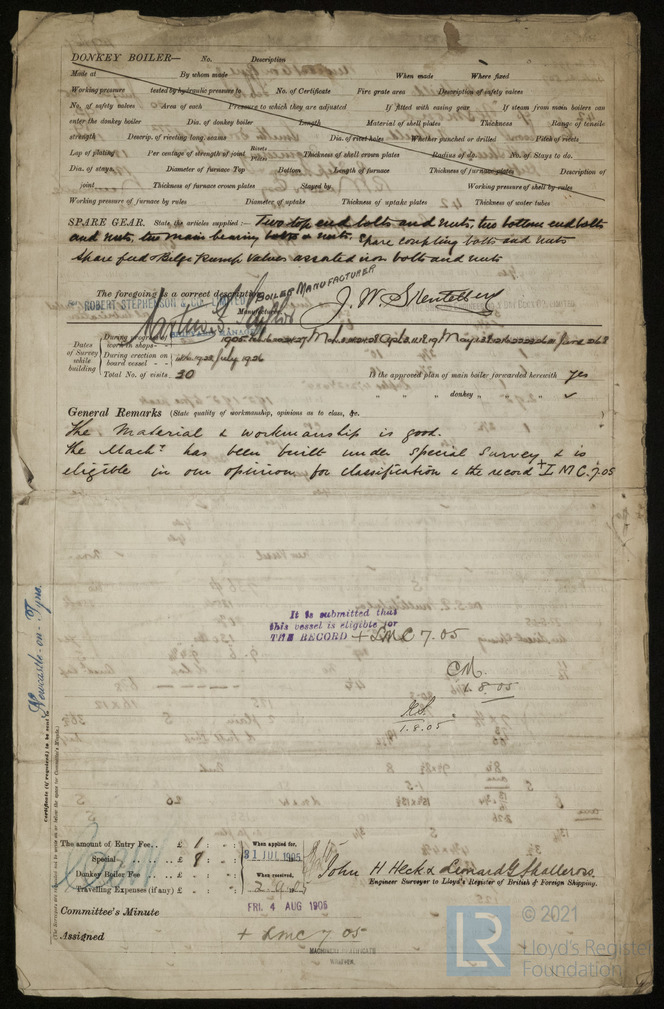 DONKEY BOILER— No. Description
Made at By whom made When made Where fixed
Working pressure tested by hydraulic pressure to No. of Certificate Fire grate area Description of safety valves
No. of safety valves Area of each Pressure to which they are adjusted If fitted with easing gear If steam from main boilers can
enter the donkey boiler Dia. of donkey boiler Length Material of shell plates Thickness Range of tensile
strength Descrip. of riveting long. seams Dia. of rivet holes Whether punched or drilled Pitch of rivets
Lap of plating Per centage of strength of joint Rivets Plates Thickness of shell crown plates Radius of do. No. of Stays to do.
Dia. of stays Diameter of furnace Top Bottom Length of furnace Thickness of furnace plates Description of
joint Thickness of furnace crown plates Stayed by Working pressure of shell by rules
Working pressure of furnace by rules Diameter of uptake Thickness of uptake plates Thickness of water tubes
SPARE GEAR. State the articles supplied:— Two top end bolts and nuts, two bottom end bolts
and nuts, two main bearing bolts & nuts. Spare coupling bolts and nuts
Spare feed & Bilge Pump Valves assorted iron bolts and nuts
The foregoing is a correct description
BOILER MANUFACTURER
ROBERT STEPHENSON & Co. LIMITED
Manufacturer.
Dates of Survey while building
During progress of work in shops - -
During erection on board vessel - -
Total No. of visits 30
Is the approved plan of main boiler forwarded herewith yes
" " " donkey " " "
General Remarks (State quality of workmanship, opinions as to class, &c.
The Material & workmanship is good.
The Machy has been built under Special Survey & is
eligible in our opinion for classification & the record + L M C. 7.05
It is submitted that
this vessel is eligible for
THE RECORD + LMC 7.05
1.8.05
1.8.05
Newcastle-on-Tyne.
Certificate (if required) to be sent to
The amount of Entry Fee.. £ 1 : :
When applied for,
Special .. .. .. £ 8 : :
31 JUL 1905
Donkey Boiler Fee .. .. £ : :
When received,
Travelling Expenses (if any) £ : :
John H Heck & Leonard G Shallcross.
Engineer Surveyor to Lloyd's Register of British & Foreign Shipping.
Committee's Minute
FRI. 4 AUG 1905
Assigned
+ LMC 7 05
MACHINERY CERTIFICATE
WRITTEN.
© 2021
LR
Lloyd's Register
Foundation